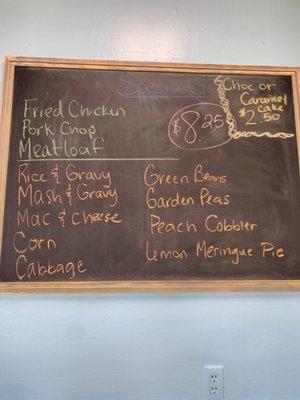 Specials
Choc or
Caramel
Cake
$2.50
Fried Chicken
Pork Chop
Meatloaf
$8.25
Rice & Gravy
Mash & Gravy
Mac & Cheese
Corn
Cabbage
Green Beans
Garden Peas
Peach Cobbler
Lemon Meringue Pie